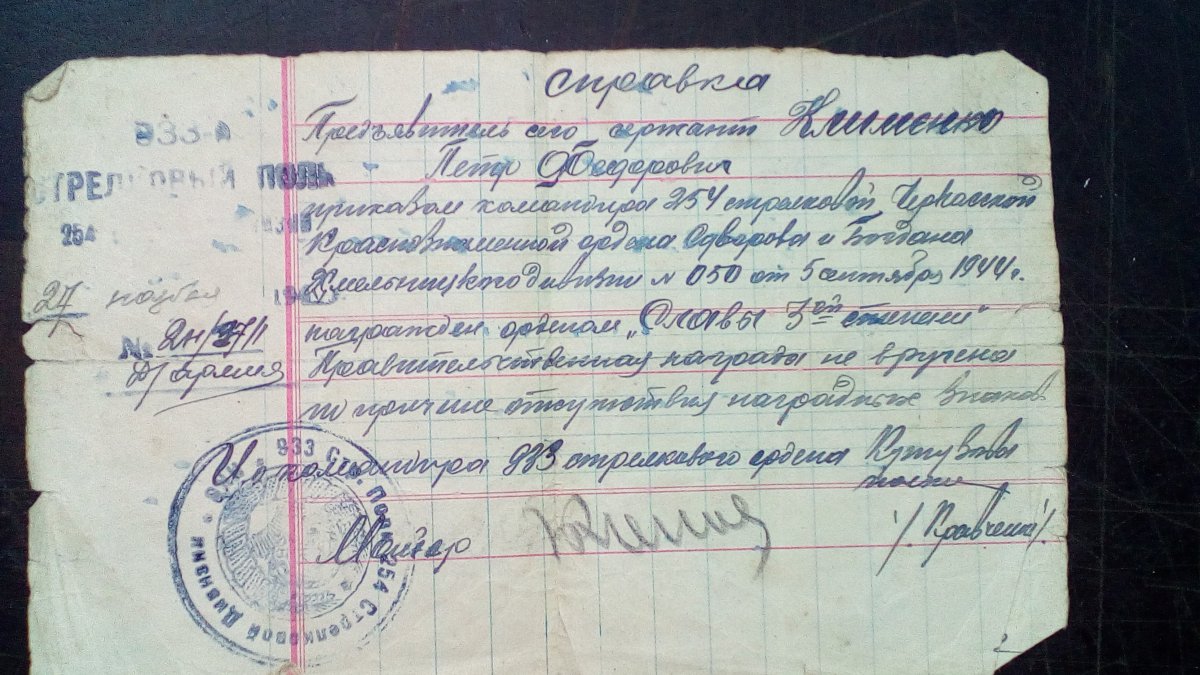 Справка
933-й
СТРЕЛКОВЫЙ ПОЛК
254
27 ноября 194
№ 2н/27/1
Д/армия
Предъявитель сего сержант Клименко
Петр Федорович
приказом командира 254 стрелковой Черкасской
Краснознаменной ордена Суворова и Богдана
Хмельницкого дивизии № 050 от 5 сентября 1944 г.
награжден орденом „Славы 3ей степени"
Правительственная награда не вручена
по причине отсутствия наградных знаков
командира 933 стрелкового ордена Кутузова
полка
Майор /Кравченко/.
933 Стр. Полк 254 Стрелковой Дивизии